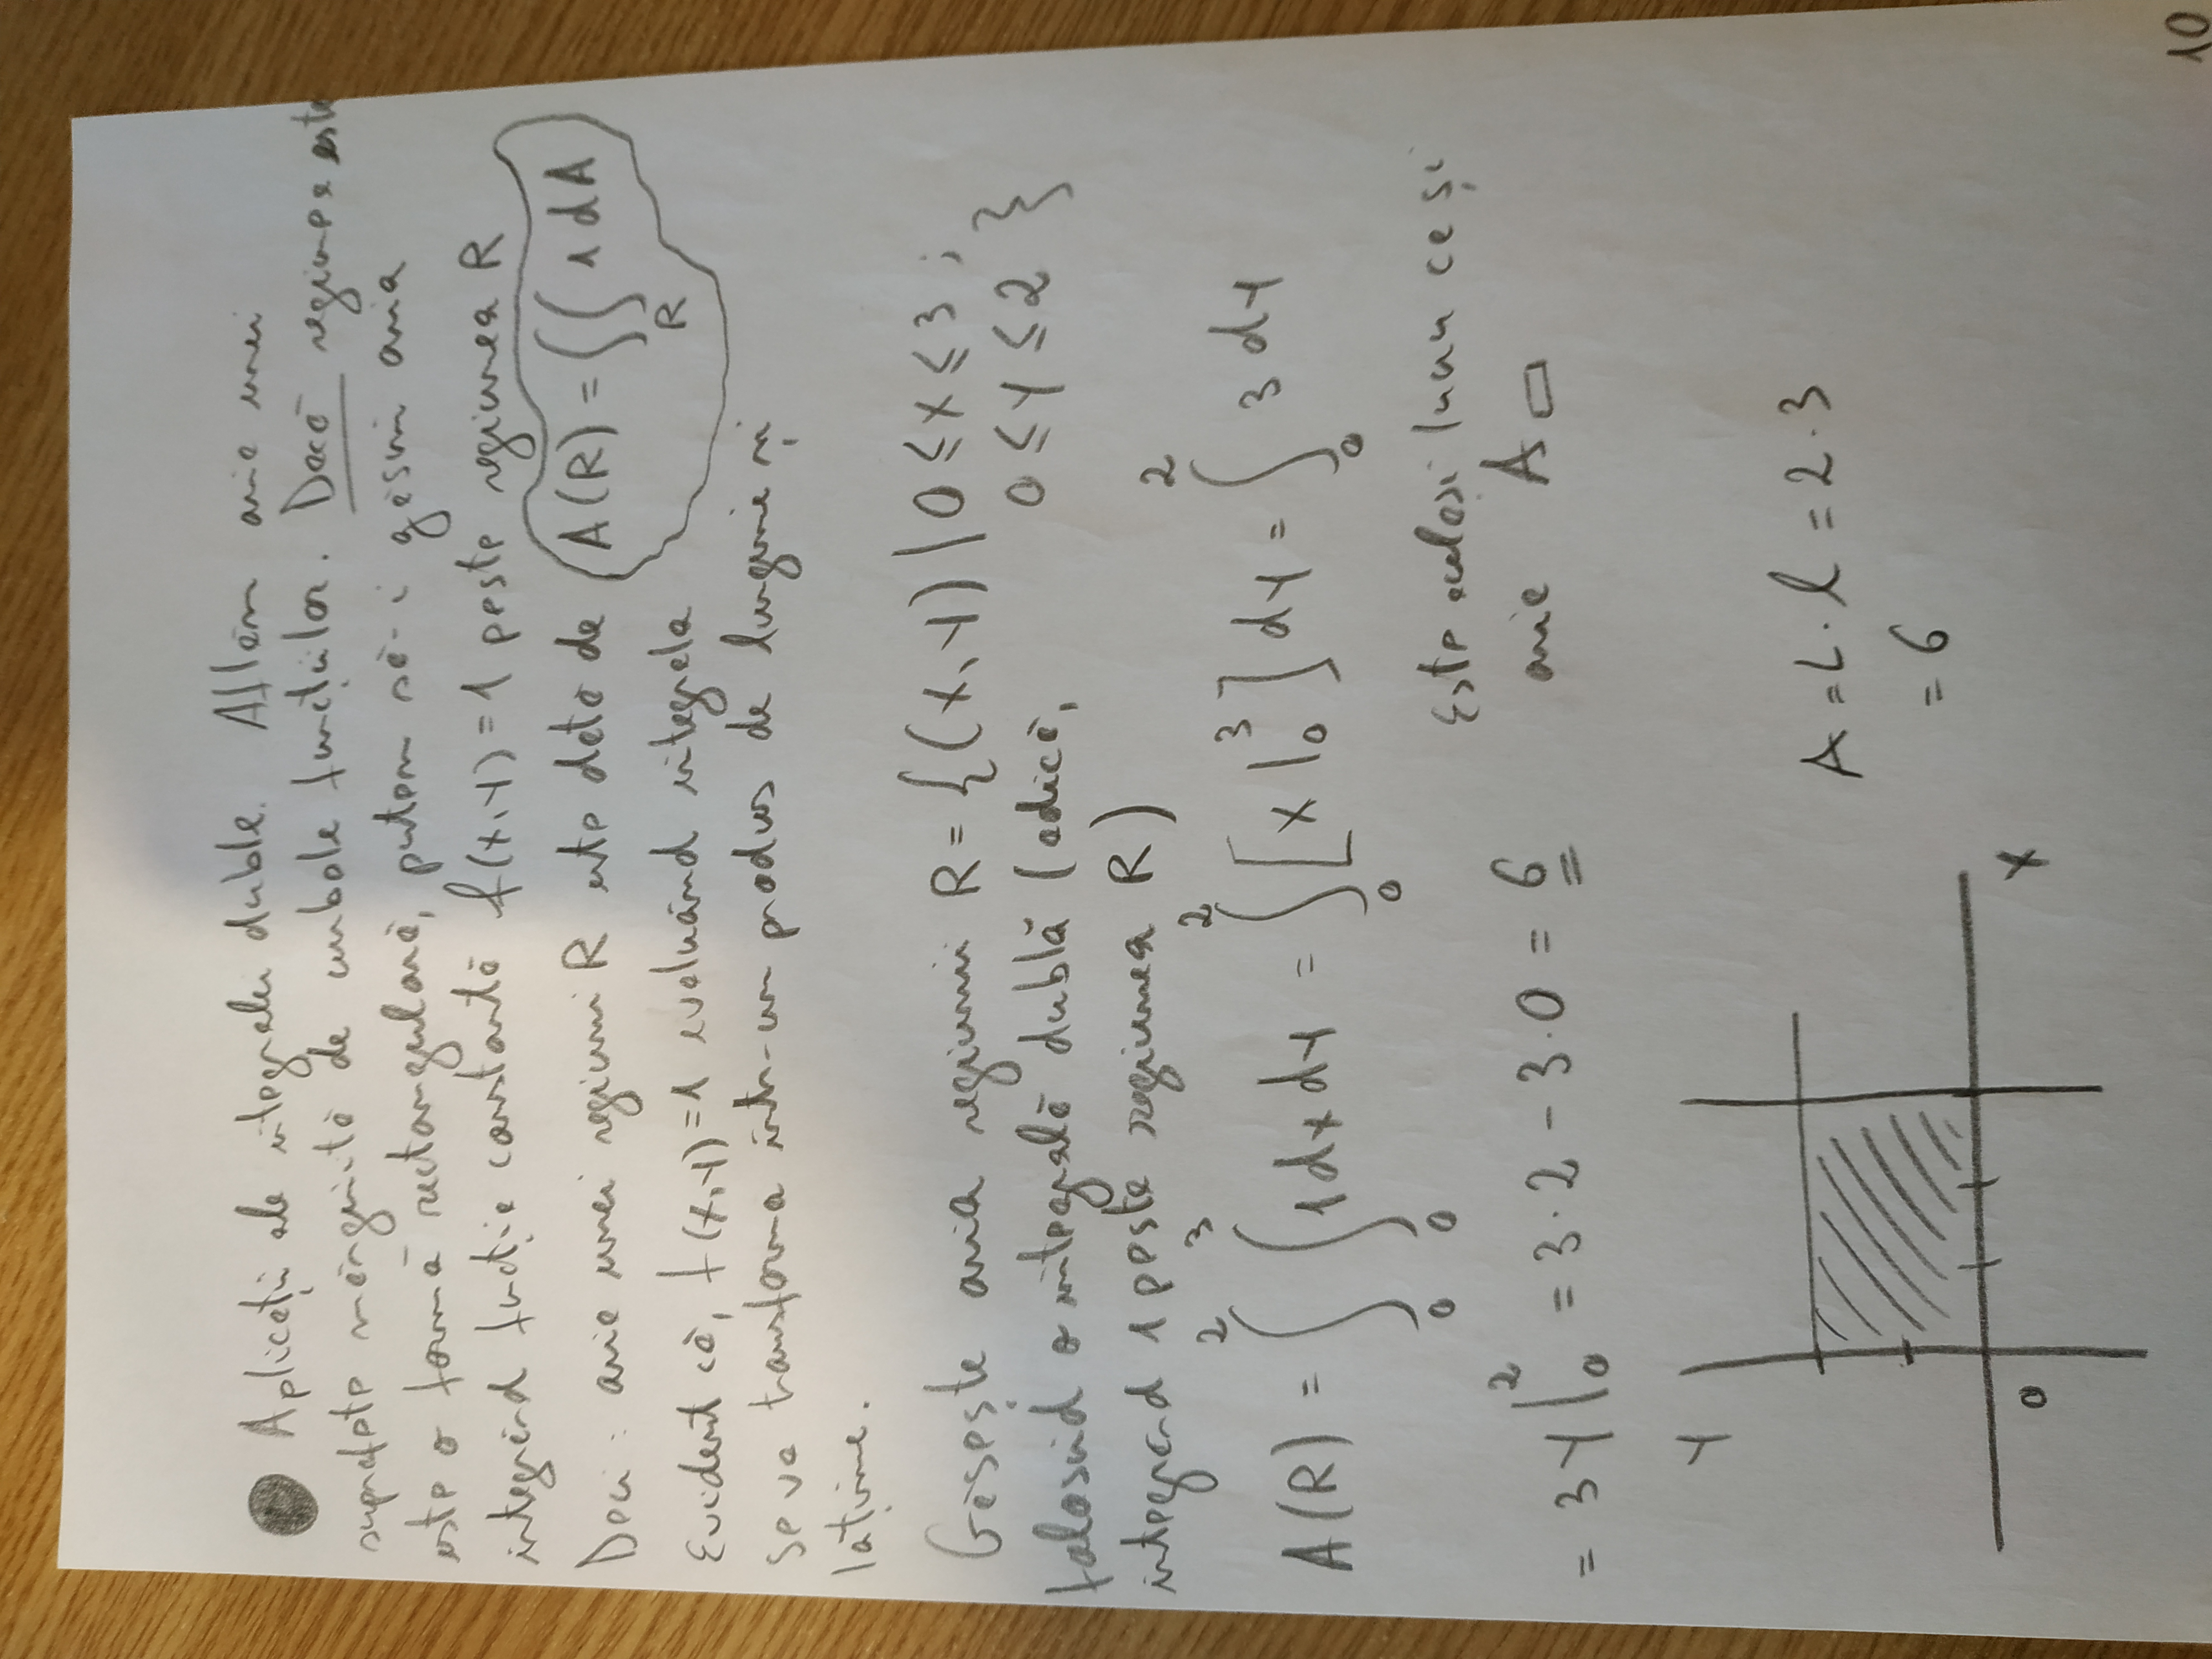 Aplicații ale integralei duble. Aflăm aria unei
suprafețe mărginită de curbele funcțiilor. Dacă regiunea este
este o formă rectangulară, putem să-i găsim aria
integrând funcția constantă f(x,y)=1 peste regiunea R
Deci: aria unei regiuni R este dată de A(R) = ∬_R 1 dA
Evident că, f(x,y)=1 evaluând integrala
se va transforma într-un produs de lungime și
lățime.
Găsește aria regiunii R = {(x,y) | 0 ≤ x ≤ 3 ;
0 ≤ y ≤ 2 }
folosind o integrală dublă (adică,
integrând 1 peste regiunea R)
A(R) = ∫_0^2 ∫_0^3 1 dx dy = ∫_0^2 [x |_0^3] dy = ∫_0^2 3 dy
= 3y |_0^2 = 3·2 - 3·0 = 6
Este același lucru ca și
aria A▭
Y
A = L·l = 2·3
= 6
0
X
10